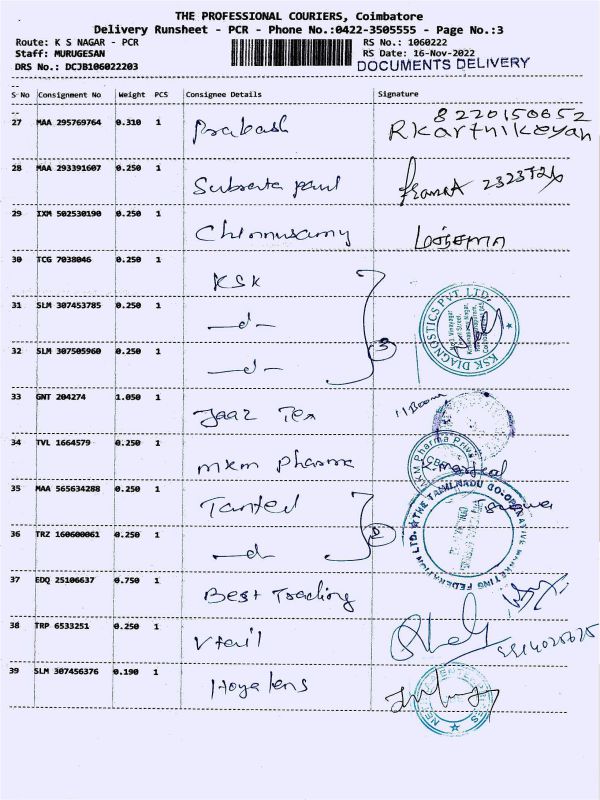 THE PROFESSIONAL COURIERS, Coimbatore
Delivery Runsheet - PCR - Phone No.:0422-3505555 - Page No.:3
Route: K S NAGAR - PCR RS No.: 1060222
Staff: MURUGESAN RS Date: 16-Nov-2022
DRS No.: DCJB106022203 DOCUMENTS DELIVERY
S No Consignment No Weight PCS Consignee Details Signature
27 MAA 295769764 0.310 1 Prakash 8220150652
Rkarthikeyan
28 MAA 293391607 0.250 1 Subrata paul
29 IXM 502530190 0.250 1 Chinnusamy
30 TCG 7038046 0.250 1 KSK
31 SLM 307453785 0.250 1 —d— KSK DIAGNOSTICS PVT. LTD.
32 SLM 307505960 0.250 1 —d— 3
33 GNT 204274 1.050 1 Jaaz Tex
34 TVL 1664579 0.250 1 mkm pharma MKM Pharma Priva
35 MAA 565634288 0.250 1 Tanfed
36 TRZ 160600061 0.250 1 —d— 2 THE TAMILNADU CO-OPERATIVE MARKETING FEDERATION LTD.
37 EDQ 25106637 0.750 1 Best Trading
38 TRP 6533251 0.250 1
39 SLM 307456376 0.190 1 Hoya lens